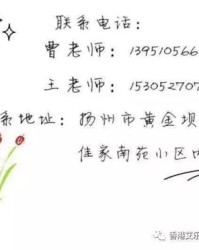 联系电话：
曹老师：139510566
王老师：153052707
系地址：扬州市黄金坝
佳家南苑小区内
香港艾乐